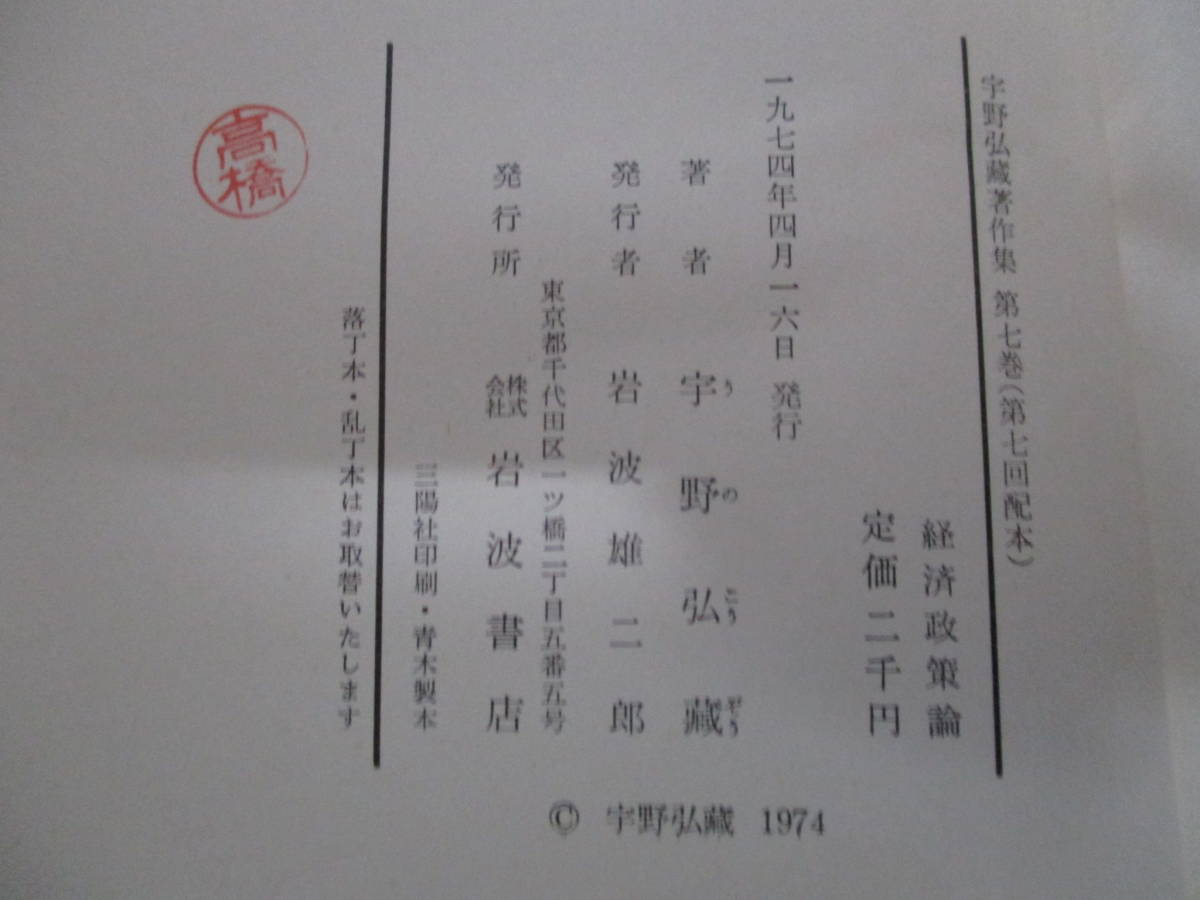 宇野弘蔵著作集 第七巻(第七回配本)
経済政策論
定価二千円
一九七四年四月一六日 発行
著者 宇野弘藏
うのこうぞう
発行者 岩波雄二郎
東京都千代田区一ツ橋二丁目五番五号
発行所 株式会社 岩波書店
三陽社印刷・青木製本
落丁本・乱丁本はお取替いたします
高橋
© 宇野弘藏 1974